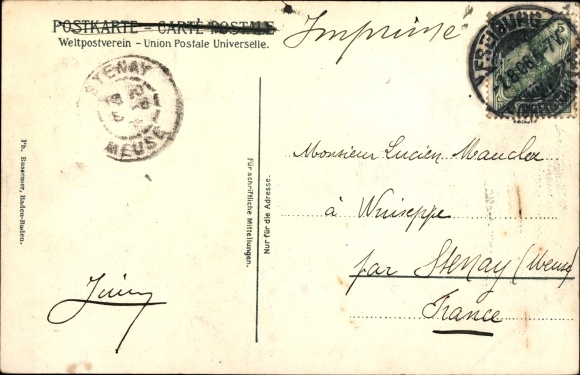 POSTKARTE – CARTE POSTALE
Weltpostverein – Union Postale Universelle.
Imprimé
STENAY
MEUSE
Ph. Bussemer, Baden-Baden.
Für schriftliche Mitteilungen.
Nur für die Adresse.
Monsieur Lucien
à Wiseppe
par Stenay (Meuse)
France